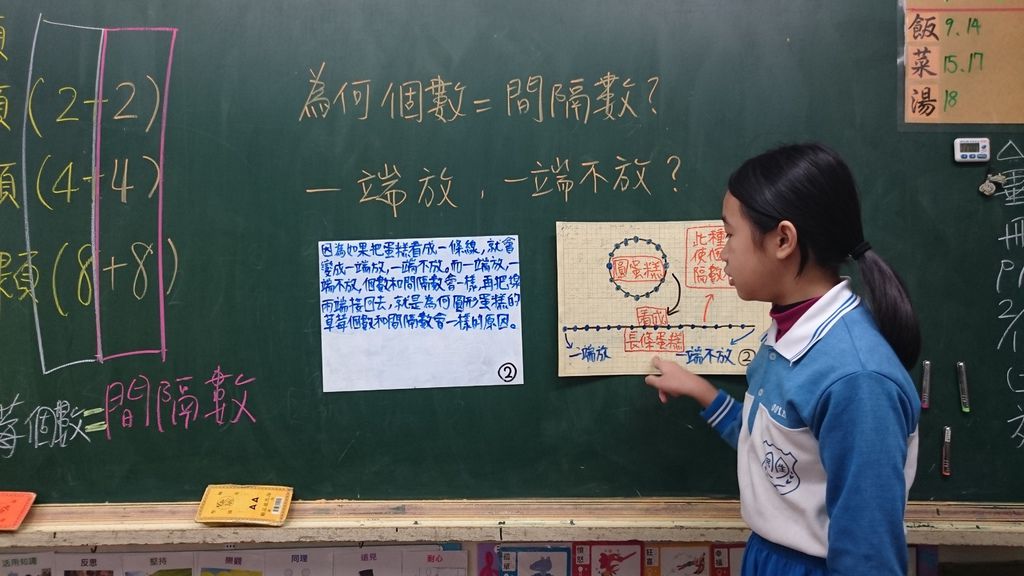 為何個數=間隔數?
一端放,一端不放?
(2+2)
顆(4+4)
顆(8+8)
莓個數=間隔數
因為如果把蛋糕看成一條線,就會
變成一端放,一端不放。而一端放,一
端不放,個數和間隔數會一樣,再把線
兩端接回去,就是為何圓形蛋糕的
草莓個數和間隔數會一樣的原因。
②
圓蛋糕
此種
使個
隔數
看成
長條蛋糕
一端放
一端不放
②
飯 9.14
菜 15.17
湯 18
活用知識
反思
堅持
樂觀
同理
遠見
耐心